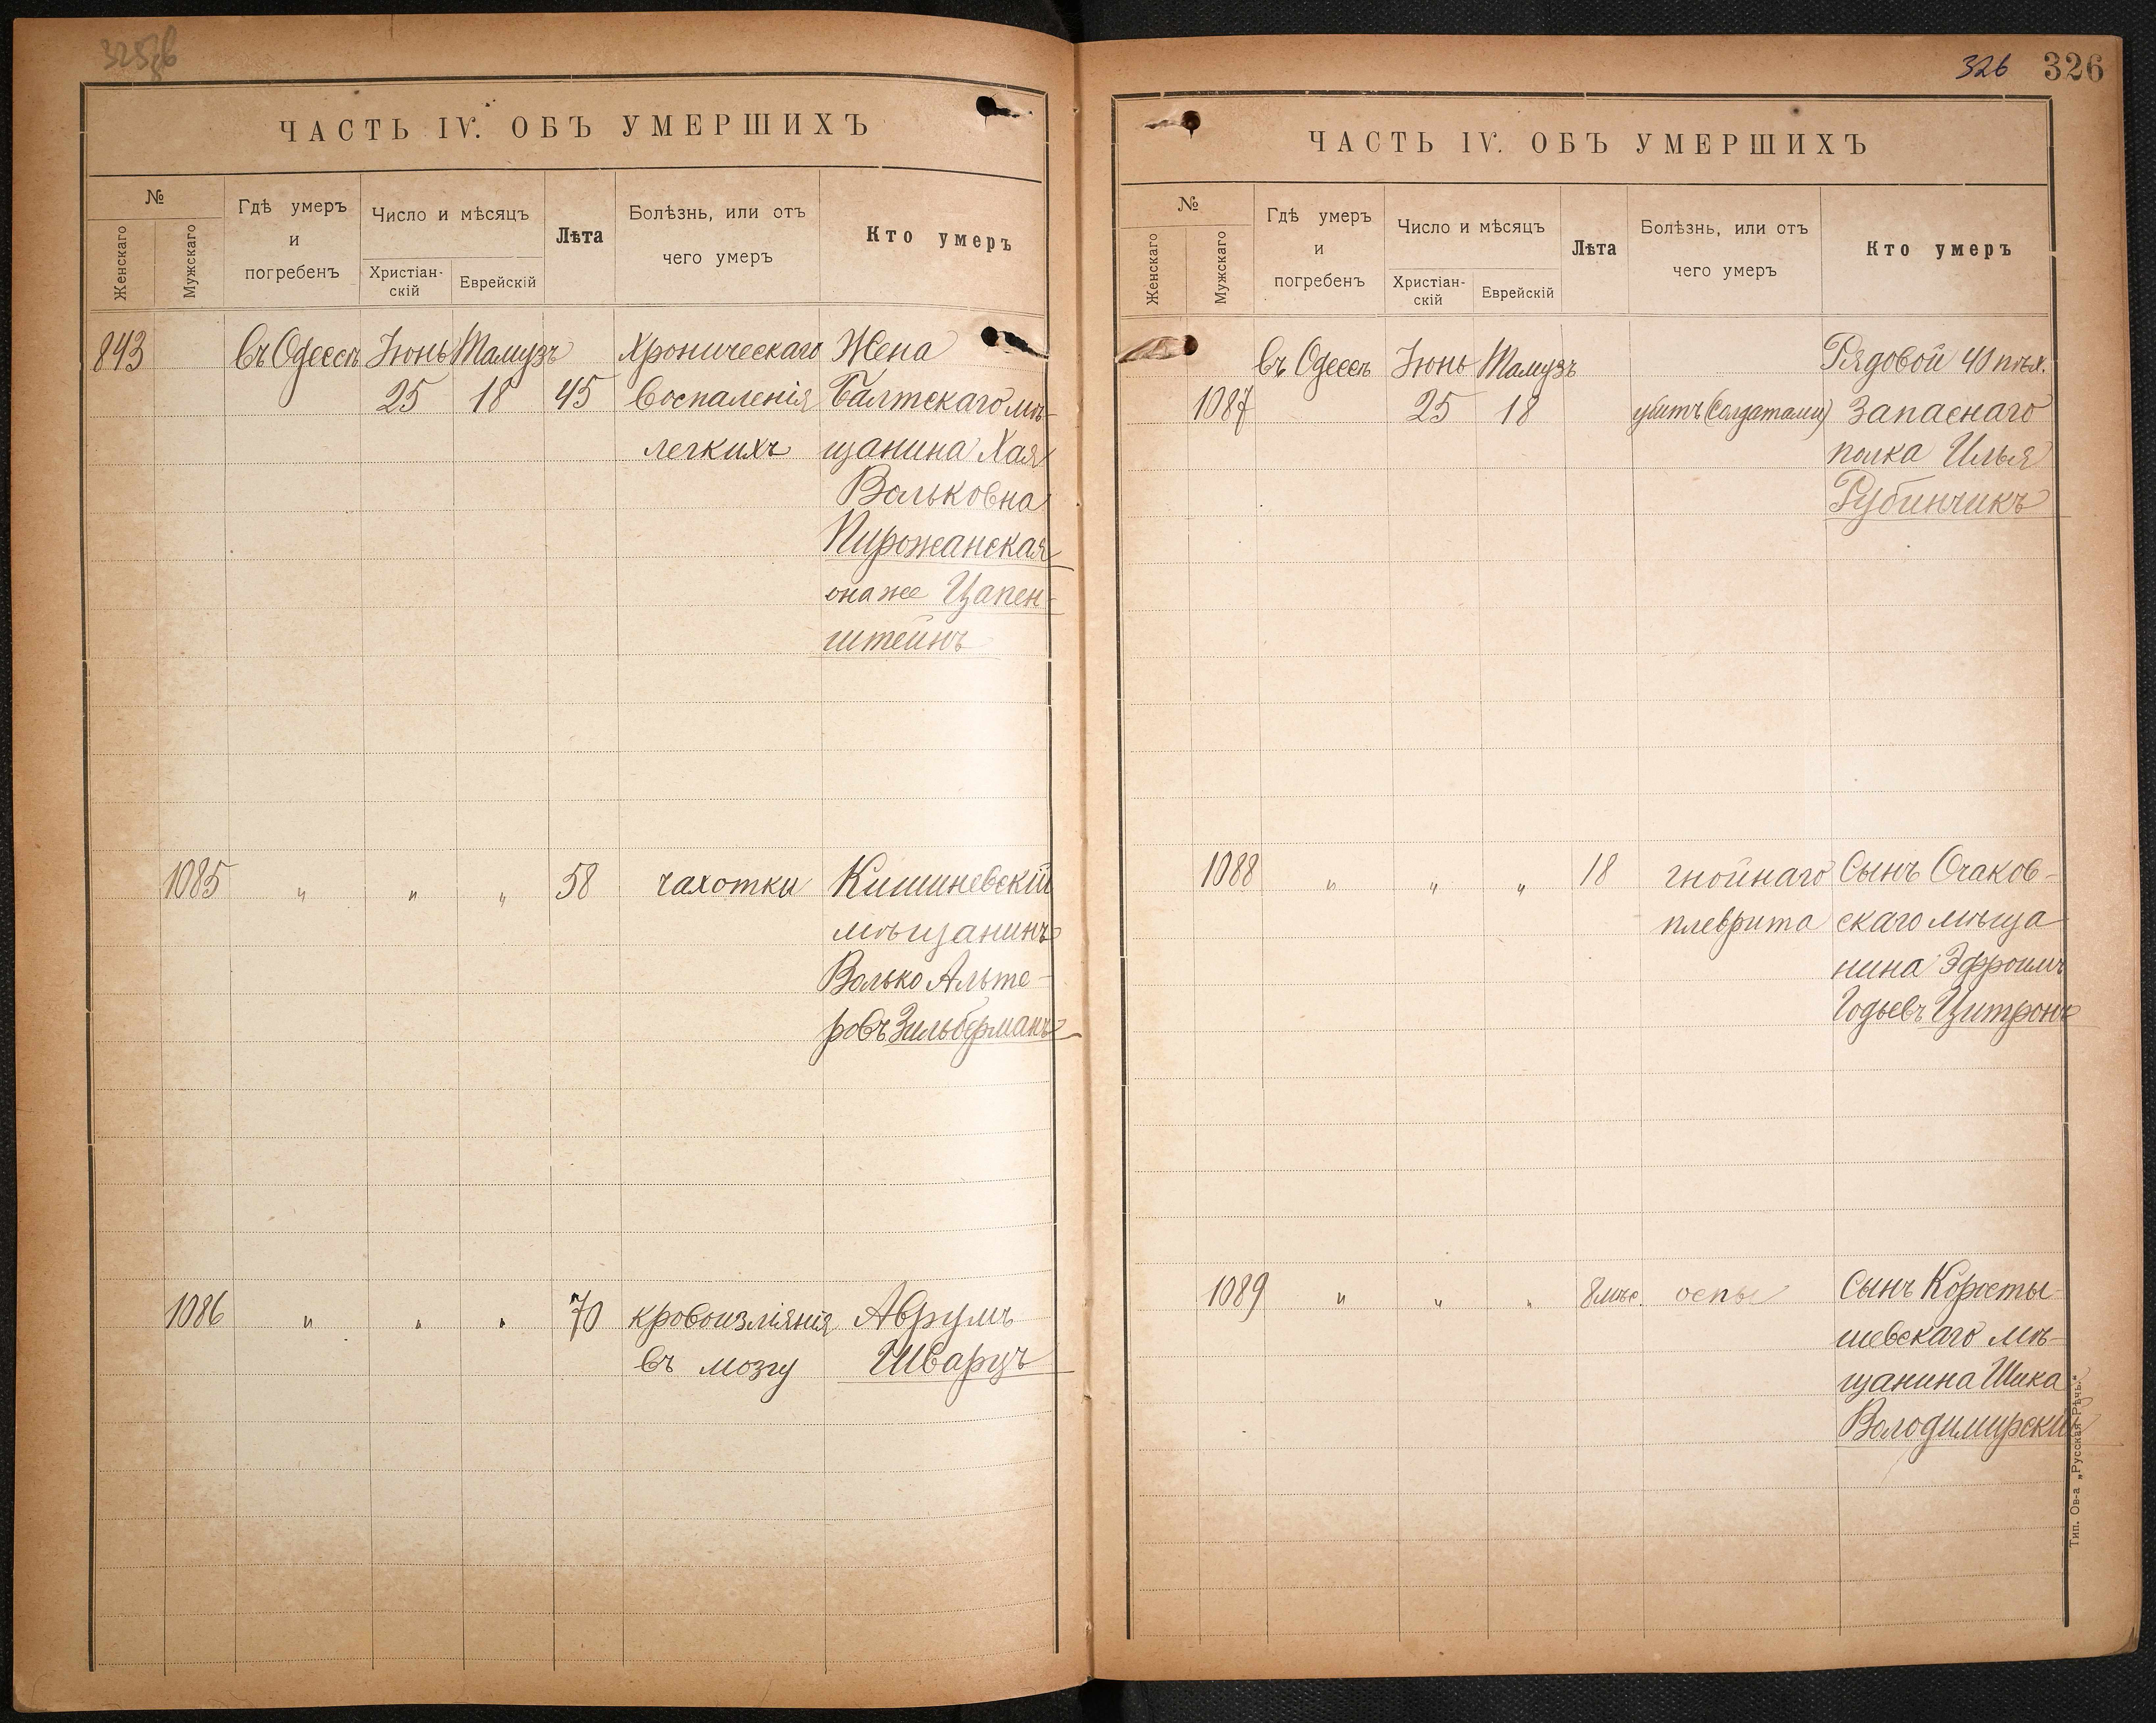 ЧАСТЬ IV. ОБЪ УМЕРШИХЪ
№
Женскаго
Мужскаго
Гдѣ умеръ
и
погребенъ
Число и мѣсяцъ
Христіан-
скій
Еврейскій
Лѣта
Болѣзнь, или отъ
чего умеръ
Кто умеръ
843 въ Одессѣ Іюнь Тамузъ Хроническаго Жена
25 18 45 воспаленія Балтскаго мѣ-
легкихъ щанина Хая
Вольковна
Пирожанская
она же Цапен-
штейнъ
1085 " " " 58 чахотки Кишиневскій
мѣщанинъ
Волько Альте-
ровъ Зильберманъ
1086 " " " 70 кровоизліянія Аврумъ
въ мозгу Шварцъ
326 326
ЧАСТЬ IV. ОБЪ УМЕРШИХЪ
№
Женскаго
Мужскаго
Гдѣ умеръ
и
погребенъ
Число и мѣсяцъ
Христіан-
скій
Еврейскій
Лѣта
Болѣзнь, или отъ
чего умеръ
Кто умеръ
въ Одессѣ Іюнь Тамузъ Рядовой 40 пѣх.
1087 25 18 убитъ (солдатами) Запаснаго
полка Илья
Рубинчикъ
1088 " " " 18 гнойнаго Сынъ Очаков-
плеврита скаго мѣща
нина Эфроимъ
Годьевъ Цитронъ
1089 " " " 8 мѣс. оспы Сынъ Коросты-
шевскаго мѣ-
щанина Шика
Володимирскій
Тип. Ов-а „Русская Рѣчь."